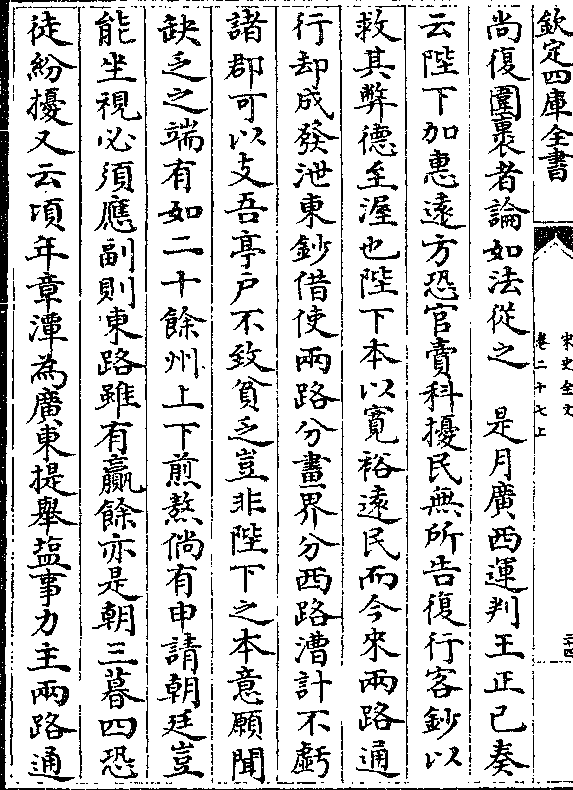 欽定四庫全書
宋史全文
卷二十七上
尚復圍裹者論如法從之　是月廣西運判王正己奏
云陛下加惠遠方恐官賣科擾民無所告復行客鈔以
救其弊德至渥也陛下本以寛裕遠民而今來兩路通
行却成發泄東鈔借使兩路分畫界分西路漕計不虧
諸郡可以支吾亭戶不致貧乏豈非陛下之本意願聞
缺乏之端有如二十餘州上下煎熬倘有申請朝廷豈
能坐視必須應副則東路雖有贏餘亦是朝三暮四恐
徒紛擾又云頃年章潭為廣東提舉鹽事力主兩路通